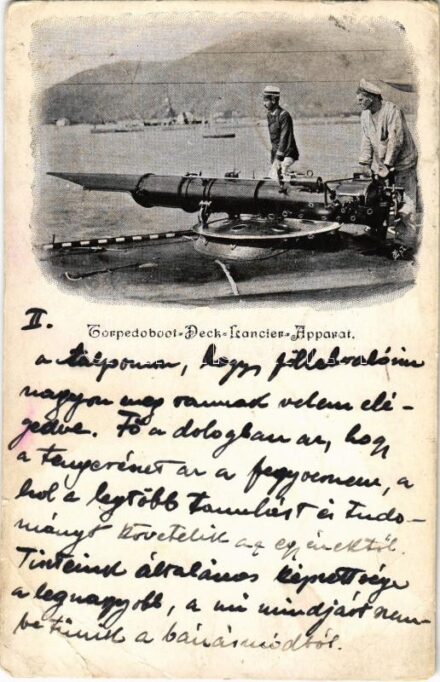 Torpedoboot-Deck-Lancier-Apparat.
II.
a talpomon, hogy
nagyon meg vannak velem elé-
gedve. Fő a dologban az, hogy
a tengerészet az a fegyvernem, a
hol a legtöbb tanulást és tudo-
mányt követelik az egyénektől.
Tisteink általános képzettsége
a legnagyobb, a mi mindjárt szem-
be tünik a bánásmódból.